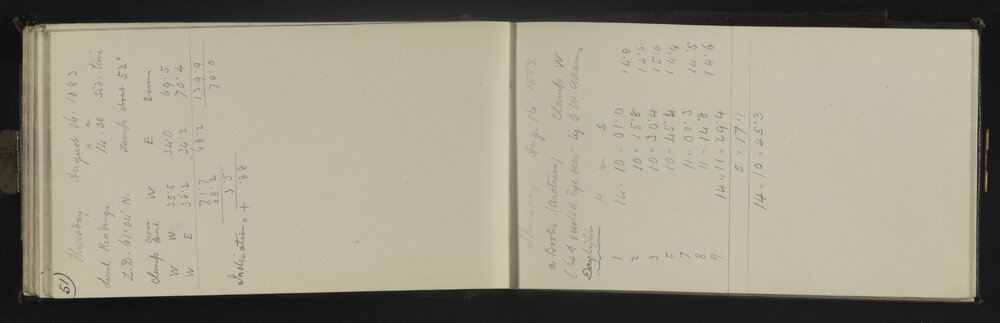 51)
Thursday August 16. 1883
Level Readings 14h 08m Sid. time
Z.D. 61° 04' N. Temp about 52°
Clamp level W E Sums
W W 35.5 34.0 69.5
W E 36.2 34.2 70.4
71.7 68.2 139.9
68.2 70.0
3.5
Inclination = + .88
Thursday Aug. 16. 1883
α Bootis (Arcturus) Clamp W
Daylight
H m S
1 14 " 10 " 01.0 14.8
2 10 " 15.8 14.6
3 10 " 30.4 15.0
5 10 " 45.4 14.9
7 11 " 00.3 14.5
8 11 " 14.8 14.6
9 14 " 11 " 29.4
5 " 17.1
14 " 10 " 45.3